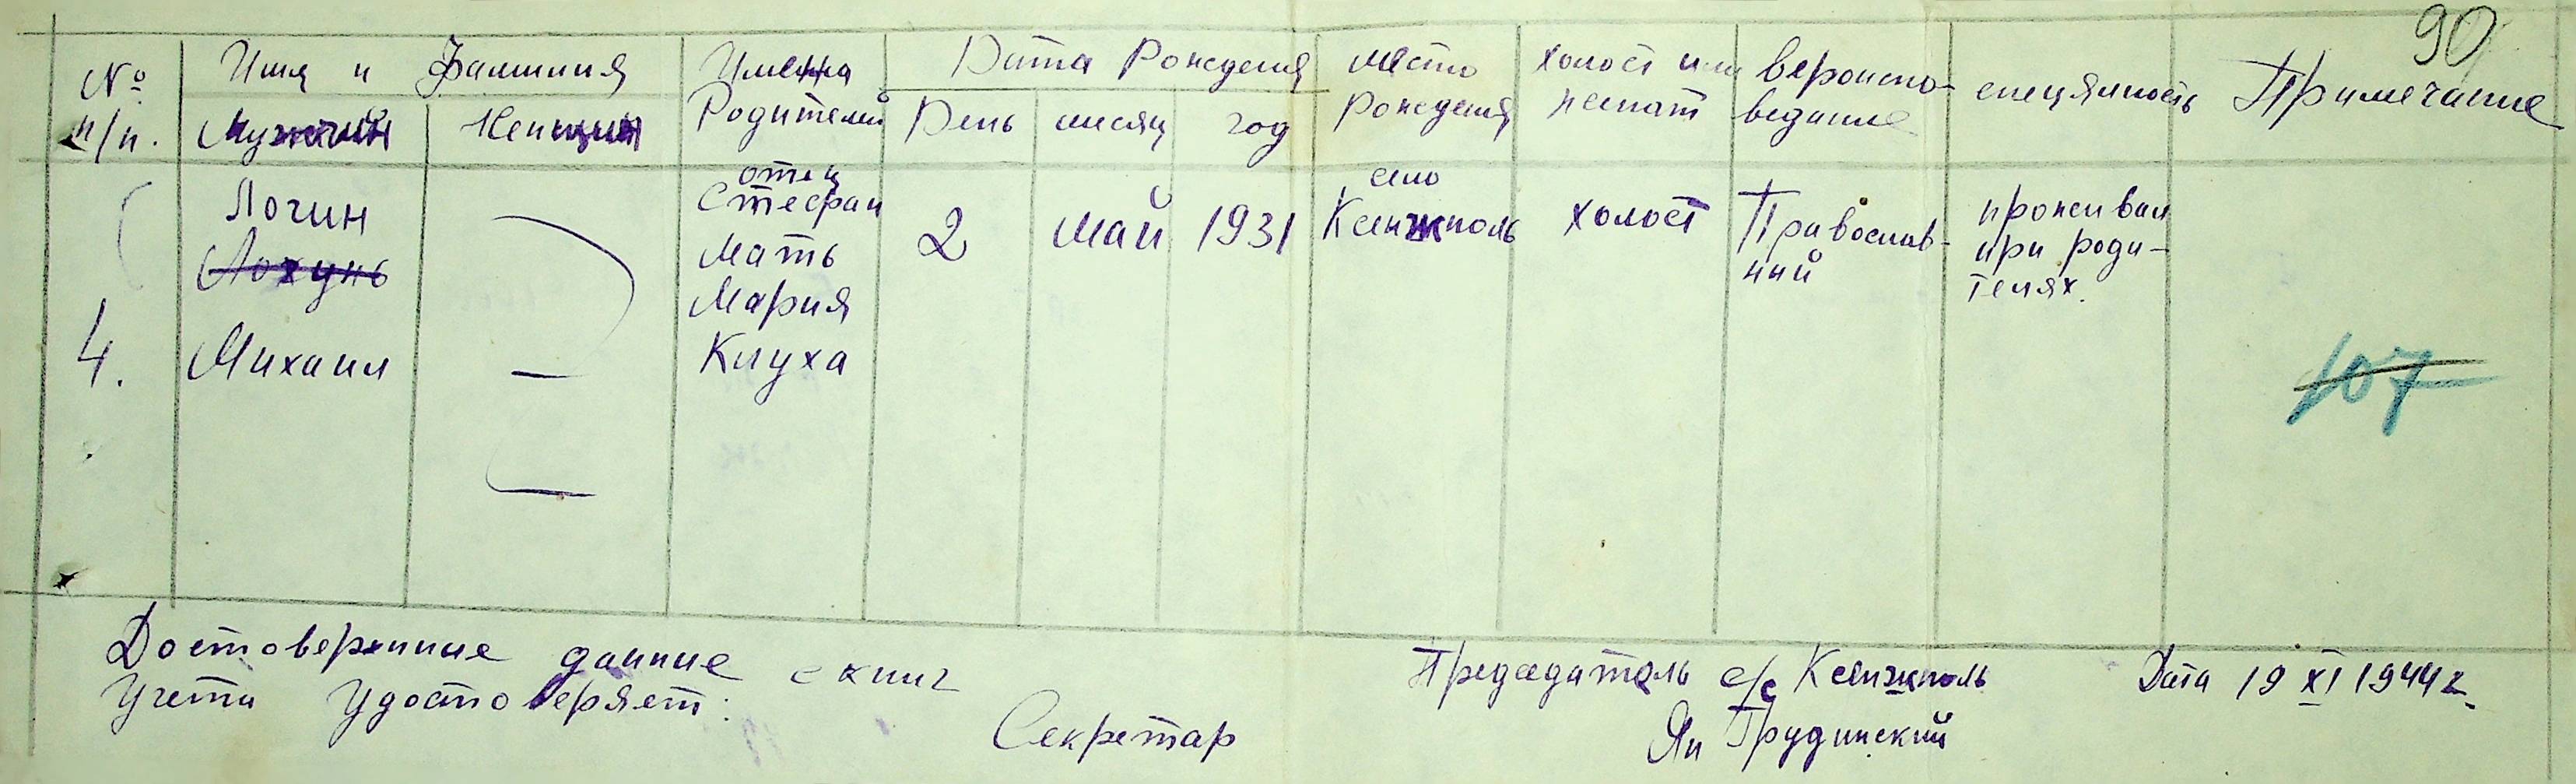 90
№ п/п.
Имя и Фамилия
Мужчин
Женщин
Имена Родителей
Дата Рождения
День
месяц
год
место рождения
холост или женат
вероиспо-
ведание
специялность
Примечание
4.
Логин
Лохунь
Михаил
—
отец
Стефан
Мать
Мария
Клуха
2
май
1931
село
Ксенжполь
холост
Православ-
ний
проживал
при роди-
телях.
107
Достоверенные данные с книг
Учета Удостоверяет:
Секретар
Председатель с/с Ксенжполь
Ян Грудинский
Дата 19 XI 1944 г.